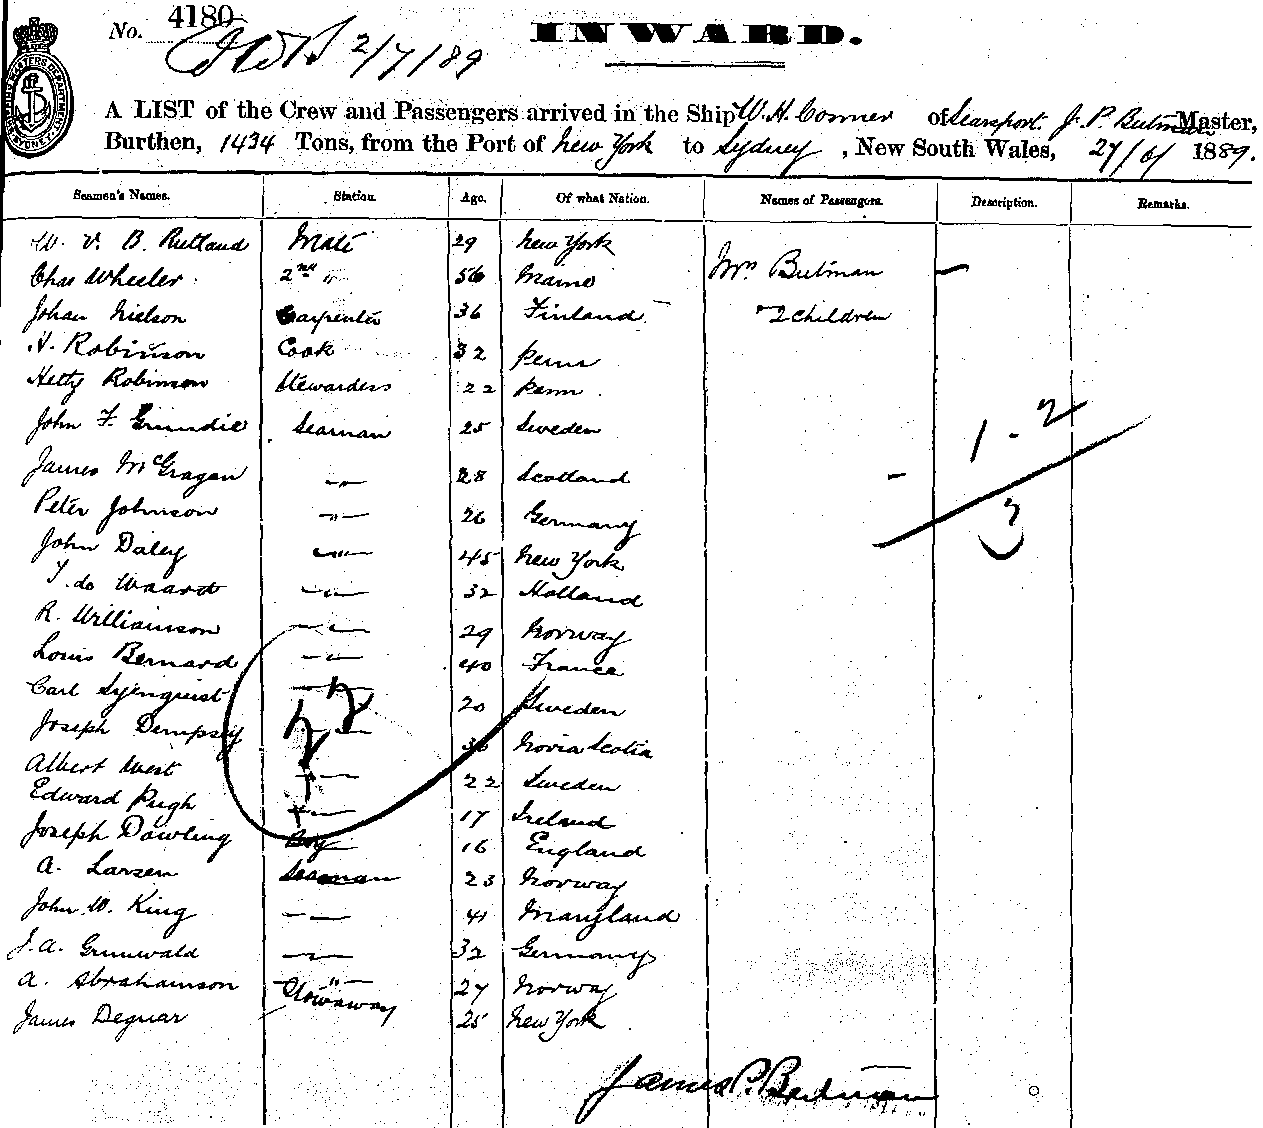 No. 4180
2/7/89
INWARD.
A LIST of the Crew and Passengers arrived in the Ship W. H. Conner of Searsport. J. P. Butman Master,
Burthen, 1434 Tons, from the Port of New York to Sydney, New South Wales, 27/6/1889.
Seamen's Names. Station. Age. Of what Nation. Names of Passengers. Description. Remarks.
W. V. B. Rutland Mate 29 New York
Chas Wheeler 2nd " 56 Maine Mrs Butman —
Johan Nielson Carpenter 36 Finland 2 Children
H. Robinson Cook 32 Penn
Hetty Robinson Stewardess 22 Penn.
John F. Grundie Seaman 25 Sweden 1 - 2
James McGragan —"— 28 Scotland -
Peter Johnson —"— 26 Germany 3
John Daley —"— 45 New York
T. de Waard —"— 32 Holland
R. Williamson —"— 29 Norway
Louis Bernard —"— 40 France
Carl 20 Sweden
Joseph Dempsey —"— 36 Novia Scotia
Albert West —"— 22 Sweden
Edward Pugh —"— 17 Ireland
Joseph Dowling Boy 16 England
A. Larsen Seaman 23 Norway
John W. King —"— 41 Maryland
J. A. Grunwald —"— 32 Germany
A. Abrahamson —"— 27 Norway
James Degnar Stowaway 25 New York
James P. Butman